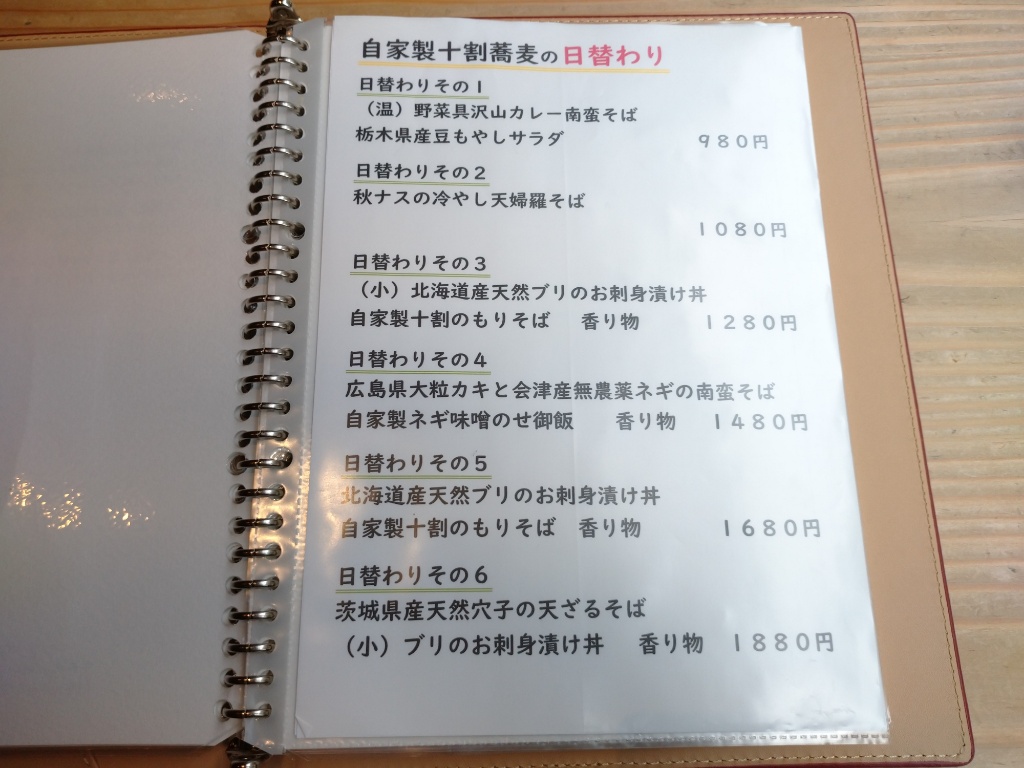 自家製十割蕎麦の日替わり
日替わりその１
（温）野菜具沢山カレー南蛮そば
栃木県産豆もやしサラダ　９８０円
日替わりその２
秋ナスの冷やし天婦羅そば
１０８０円
日替わりその３
（小）北海道産天然ブリのお刺身漬け丼
自家製十割のもりそば　香り物　１２８０円
日替わりその４
広島県大粒カキと会津産無農薬ネギの南蛮そば
自家製ネギ味噌のせ御飯　香り物　１４８０円
日替わりその５
北海道産天然ブリのお刺身漬け丼
自家製十割のもりそば　香り物　１６８０円
日替わりその６
茨城県産天然穴子の天ざるそば
（小）ブリのお刺身漬け丼　香り物　１８８０円